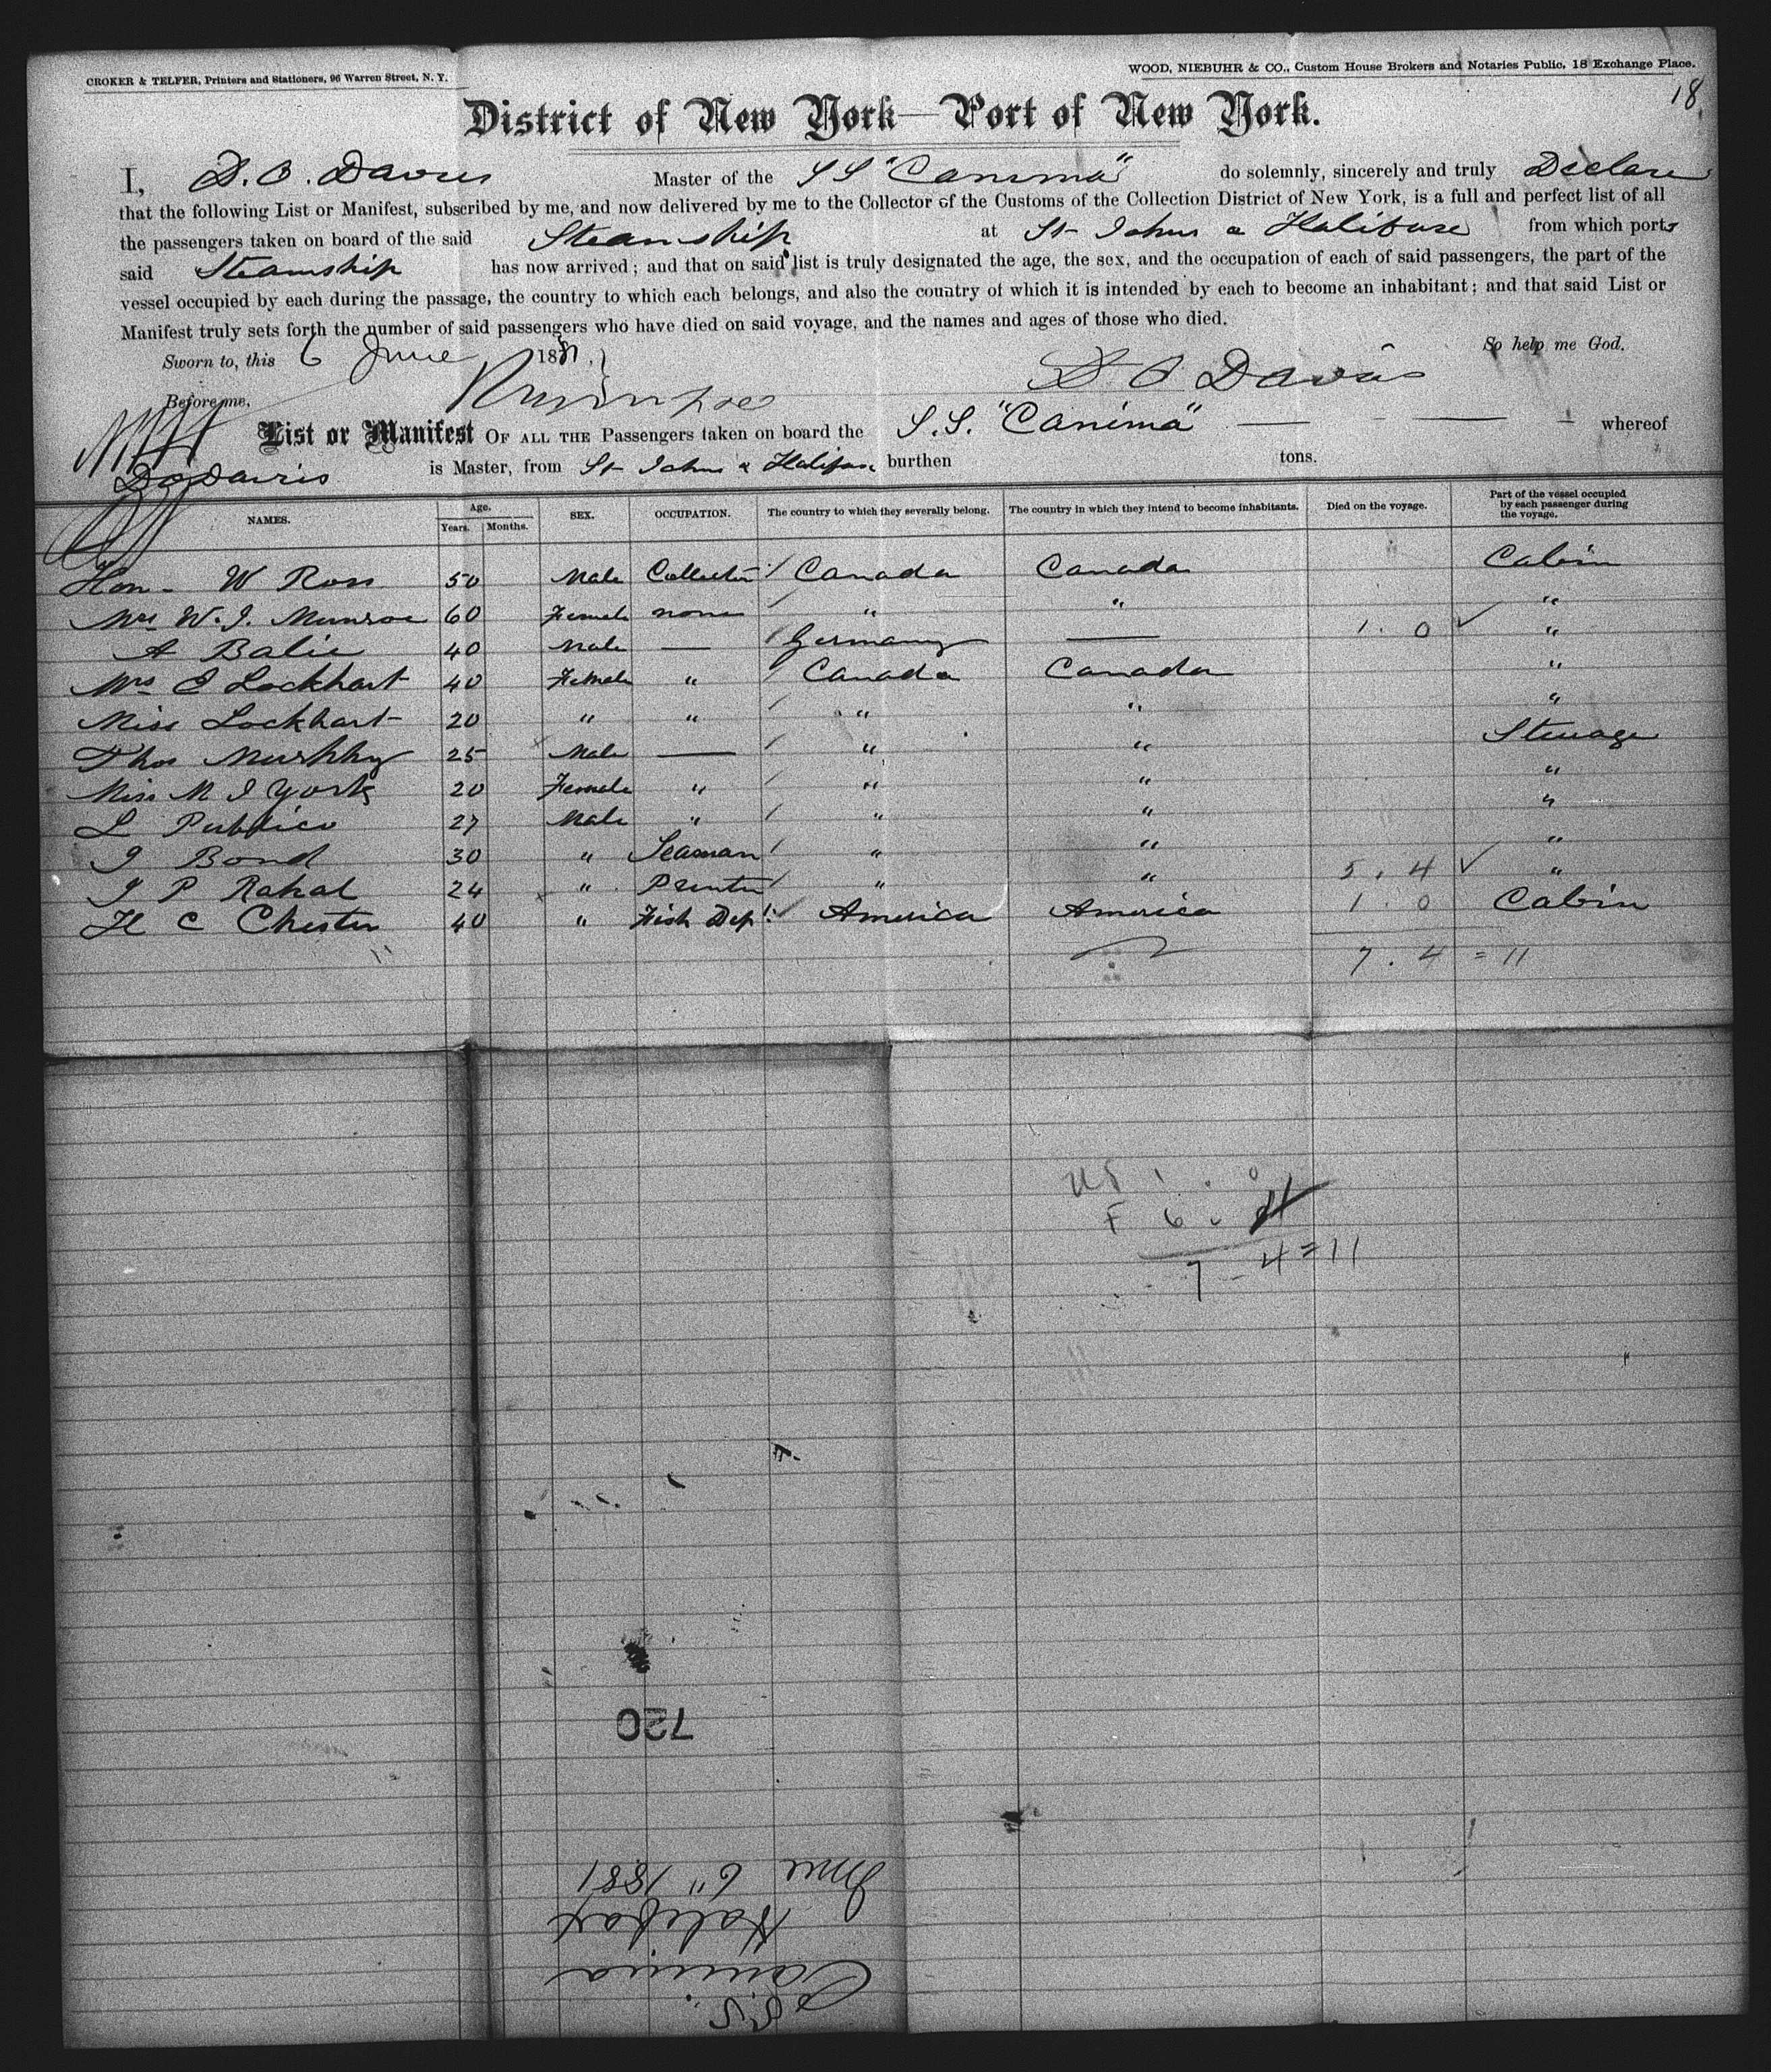 CROKER & TELFER, Printers and Stationers, 96 Warren Street, N. Y.
WOOD, NIEBUHR & CO., Custom House Brokers and Notaries Public, 18 Exchange Place.
18
District of New York—Port of New York.
I, D. O. Davis Master of the SS "Canima" do solemnly, sincerely and truly Declare
that the following List or Manifest, subscribed by me, and now delivered by me to the Collector of the Customs of the Collection District of New York, is a full and perfect list of all
the passengers taken on board of the said Steamship at St Johns & Halifax from which ports
said Steamship has now arrived; and that on said list is truly designated the age, the sex, and the occupation of each of said passengers, the part of the
vessel occupied by each during the passage, the country to which each belongs, and also the country of which it is intended by each to become an inhabitant; and that said List or
Manifest truly sets forth the number of said passengers who have died on said voyage, and the names and ages of those who died.
So help me God.
Sworn to, this 6 June 1881
D O Davis
Before me,
List or Manifest OF ALL THE Passengers taken on board the S.S. "Canima" whereof
D O Davis is Master, from St Johns & Halifax burthen tons.
NAMES. Age. Years. Months. SEX. OCCUPATION. The country to which they severally belong. The country in which they intend to become inhabitants. Died on the voyage. Part of the vessel occupied by each passenger during the voyage.
Hon. W Ross 50 Male Collector Canada Canada Cabin
Mrs W. J. Munroe 60 Female none " " "
A Balie 40 Male — Germany — 1 . 0 ✓ "
Mrs E Lockhart 40 Female " Canada Canada "
Miss Lockhart 20 " " " " "
Thos Murphy 25 Male — " " Steerage
Miss M J York 20 Female " " " "
L Publico 27 Male " " " "
J Bond 30 " Seaman " " "
J P Rahal 24 " Printer " " 5 . 4 ✓ "
H C Chester 40 " Fish Dept. America America 1 . 0 Cabin
7 . 4 = 11
US 1 . 0
F 6 .
7 - 4 = 11
720
S.S.
Canima
Halifax
June 6" 1881